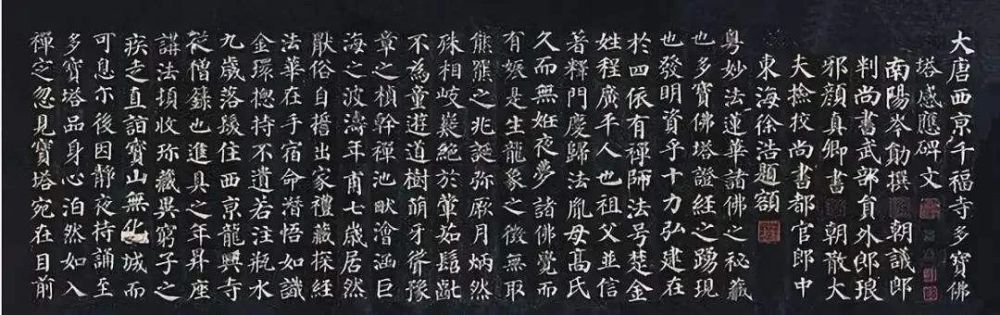 大唐西京千福寺多寶佛
塔感應碑文
南陽岑勛撰 朝議郎
判尚書武部員外郎琅
邪顏真卿書 朝散大
夫撿挍尚書都官郎中
東海徐浩題額
粵妙法蓮華諸佛之秘藏
也多寶佛塔證經之踴現
也發明資乎十力弘建在
於四依有禪師法号楚金
姓程廣平人也祖父並信
著釋門慶歸法胤母高氏
久而無姙夜夢諸佛覺而
有娠是生龍象之徵無取
熊羆之兆誕弥厥月炳然
殊相岐嶷絕於葷茹髫齓
不為童遊道樹萌牙聳豫
章之楨幹禪池畎澮涵巨
海之波濤年甫七歲居然
厭俗自誓出家禮藏探經
法華在手宿命潛悟如識
金環揔持不遺若注瓶水
九歲落髮住西京龍興寺
從僧籙也進具之年昇座
講法頓收珎藏異窮子之
疾走直詣寶山無化城而
可息尒後因靜夜持誦至
多寶塔品身心泊然如入
禪定忽見寶塔宛在目前